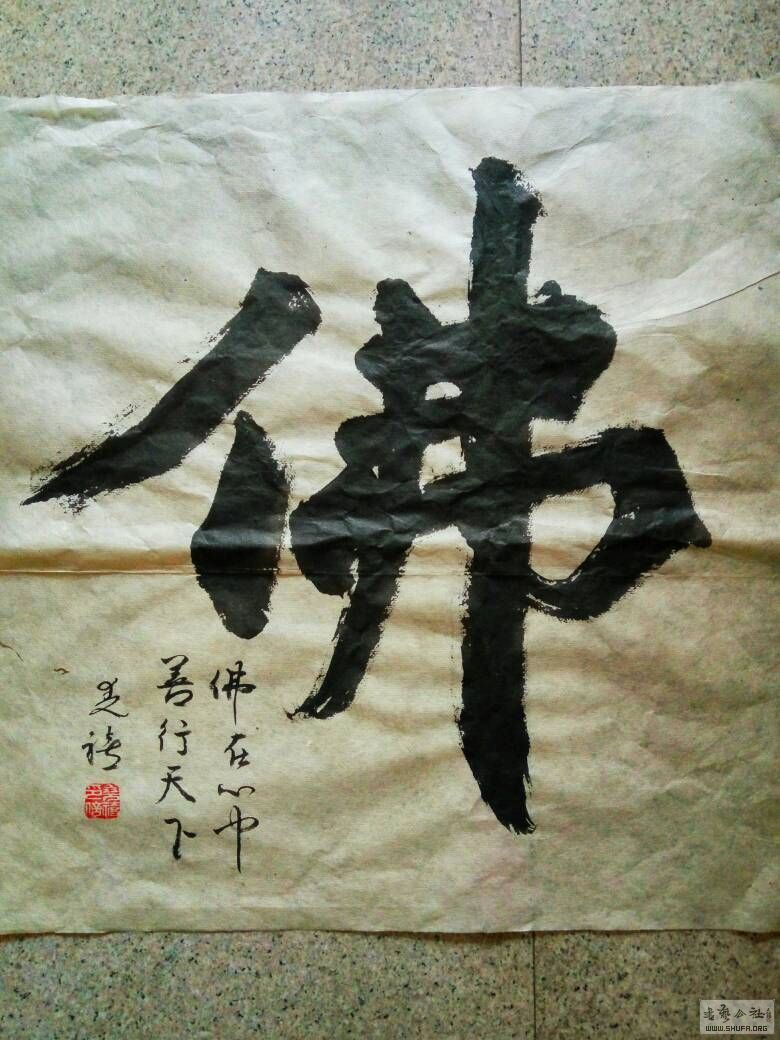 佛
佛在心中
善行天下
書藝公社
WWW.SHUFA.ORG